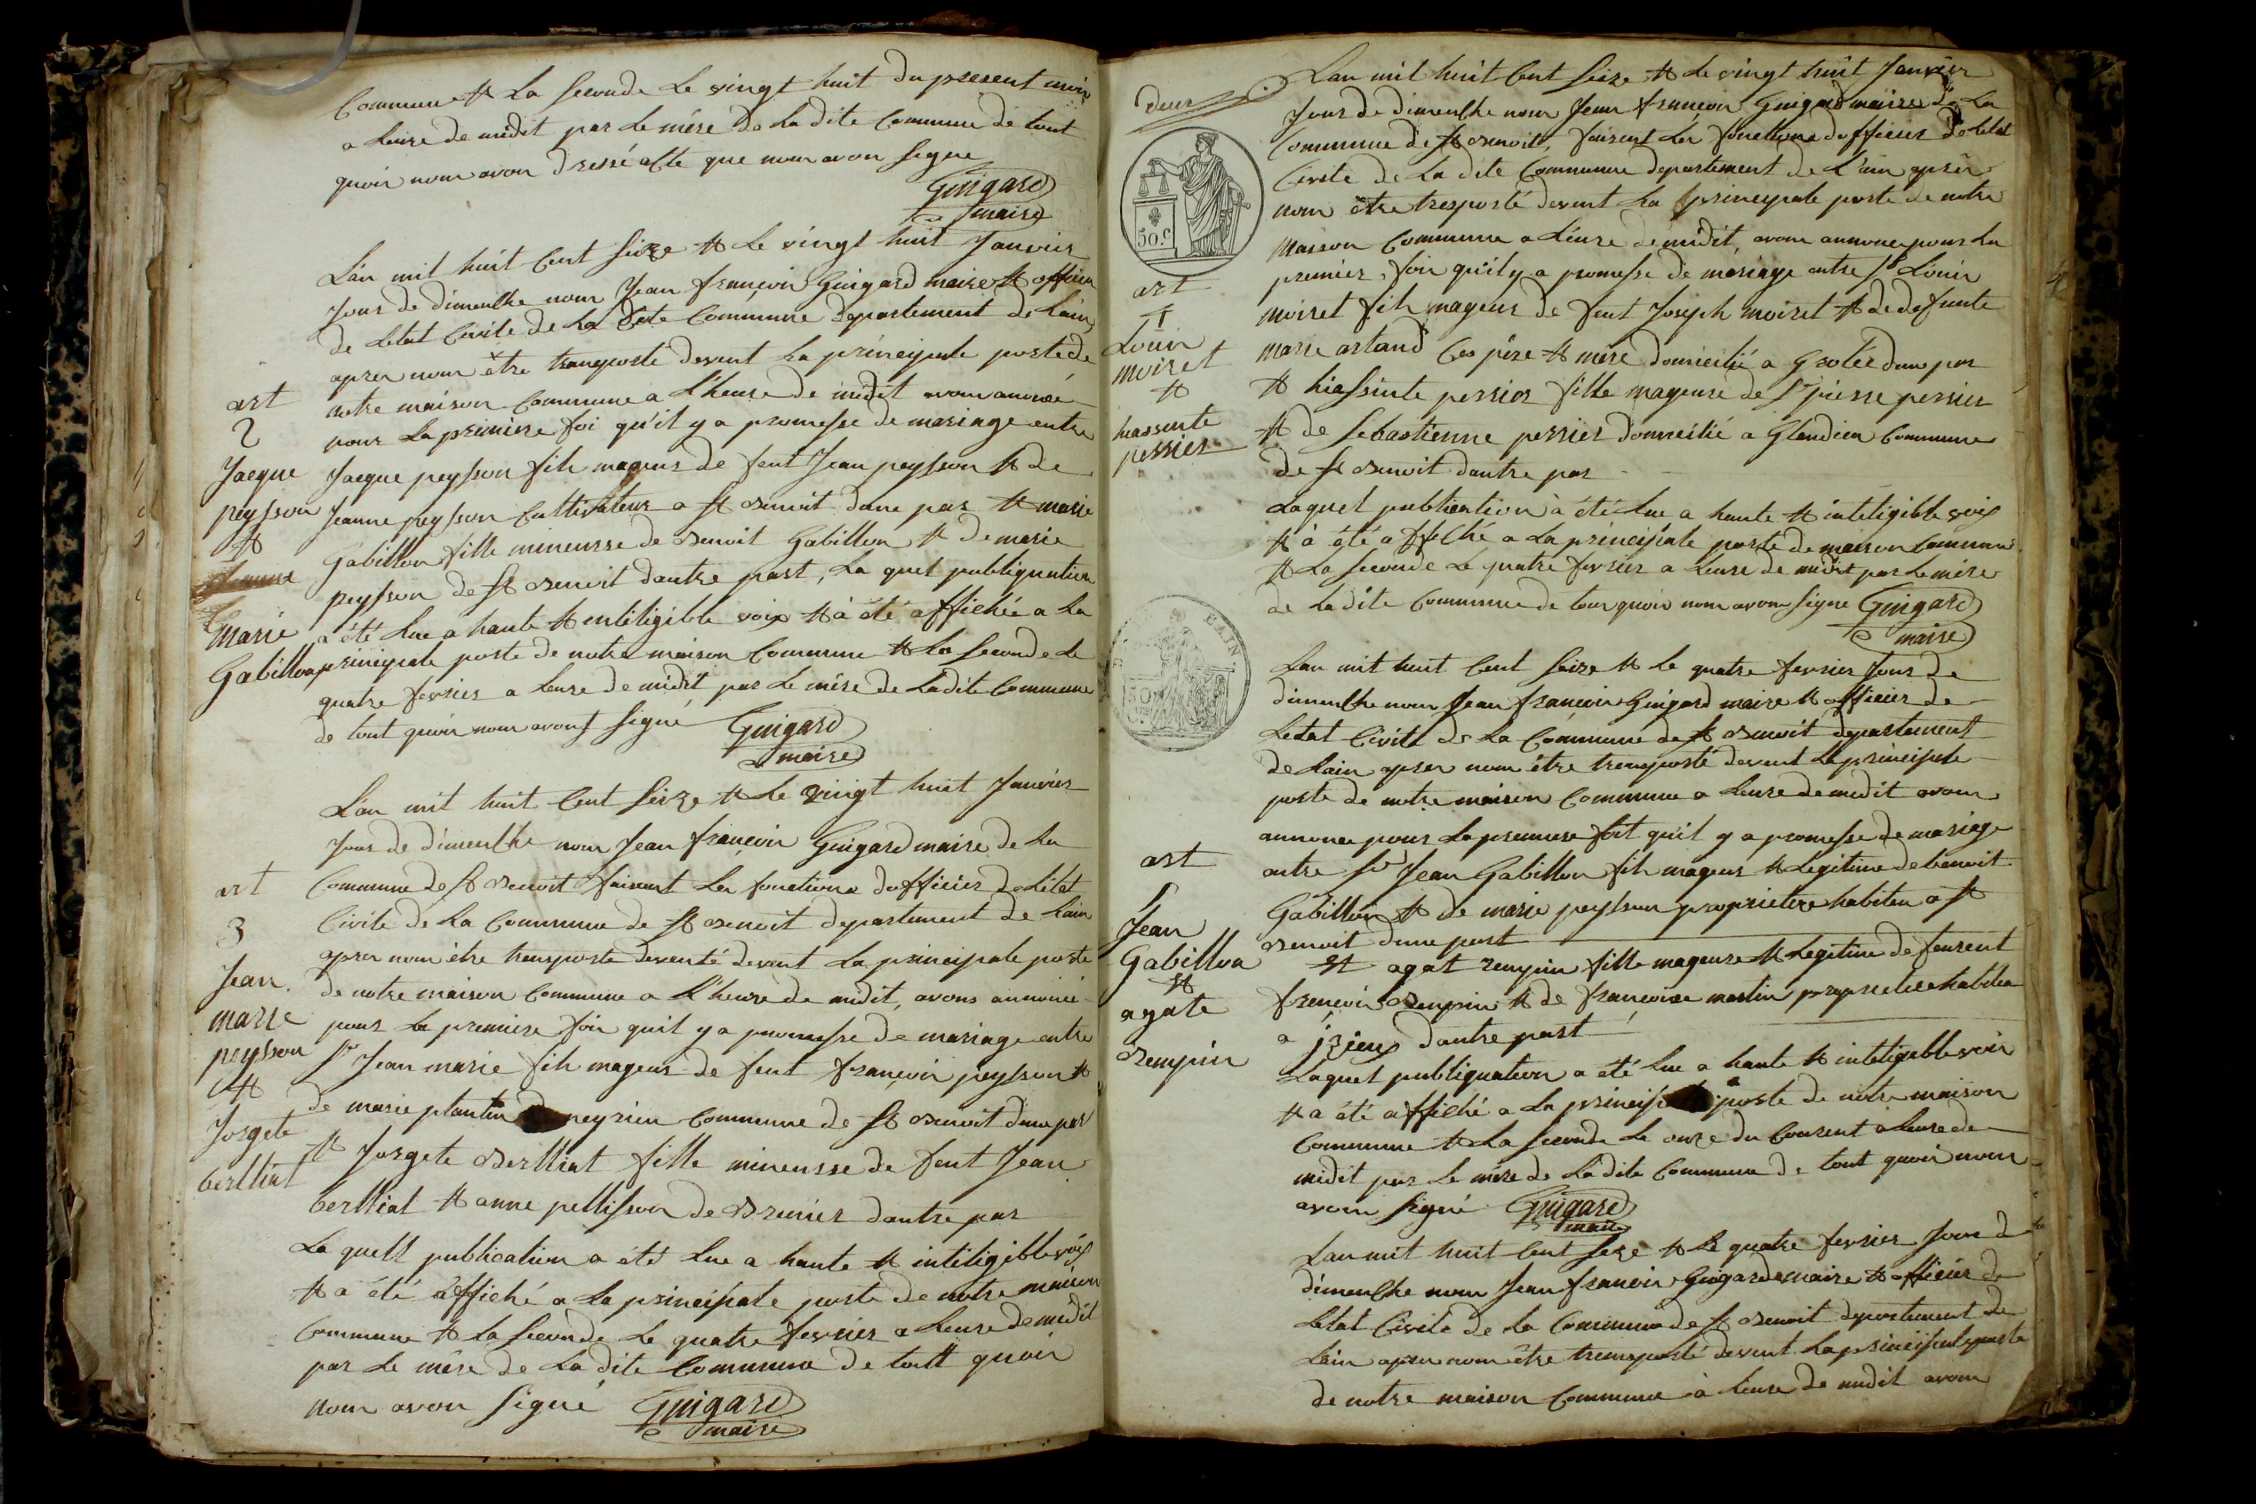 Commune et la seconde le vingt huit du present moi
a leure de midit par le mére de la dite Commune de tout
quoir nour avon dressé acte que nour avon signe
Guigard
maire
L'an mil huit Cent seize et le vingt huit Janvier
Jour de dimenlhe nour Jean françoir Guigard maire et officier
de letat Civile de la dite Commune departement de lain
aprer nour être transporte devent la principale porte de
notre maison Commune a l'heure de midit avon anoncé
pour la premiere foi qu'il y a promesse de mariage entre
art
2
Jacque
peysson
et
marie
Gabillon
Jacque peysson filh mageur de feut Jean peysson et de
Jeanne peysson Cultivateur a st Benoit dune par et marie
Gabillon fille mineusse de Benoit Gabillon et de marie
peysson de st Benoit dautre part, la quel publiquation
a été lue a haute et inteligible voix et à été affichée a la
principale porte de notre maison Commune et la seconde le
quatre fevrier a leure de midit par le mére de ladite Commune
de tout quoir nour avons signé Guigard
maire
L'an mil huit Cent seize et le vingt huit Janvier
Jour de dimenlhe nour Jean françoir Guigard maire de la
Commune de st Benoit faisant les fonctions dofficier de létat
Civile de la Commune de st Benoit departement de lain
aprer nour être transporte deventé devent la principale porte
de notre maison Commune a l'heure de midit, avons annoncé
pour la premiere foir quil y a promesse de mariage entre
art
3
Jean
marie
peysson
et
Jorgete
berlliat
sr Jean marie filh mageur de feut françoir peysson et
de marie plantin neyrieu Commune de st Benoit dune par
et Jorgete Berlliat fille mineusse de feut Jean
berlliat et anne pellisson de Brenier dautre par
La quell publication a été lue a haute et inteligible voix
et a été affiché a la principale porte de notre maison
Commune et la seconde le quatre fevrier a leure de midit
par le mére de la dite Commune de toutt quoir
nour avon signé Guigard
maire
Lan mil huit Cent seize et le vingt huit Janvier
Jour de dimenlhe nour Jean françoir Guigard maire de la
Commune de st Benoit, faisant les fonctions dofficier de letat
Civile de la dite Commune departement de l'ain aprér
nour être tresporté devent la principale porte de notre
50.c
maison Commune a léure de midit, avon annonce pour la
premier foir qu'il y a promesse de mariage entre sr Louir
art
Louir
moiret
et
hiassente
perrier
moiret filh mageur de feut Joseph moiret et de defunte
marie artaud Ces pére et mére domicilié a Grolée dune par
et hiassinte perrier fille mageure de sr pierre perrier
et de sebastienne perrier domicilié a Glandieu Commune
de st Benoit dautre par
Laquel publication à été lue a haute et inteligible voix
et à été affiché a la principale porte de maison Commune
et la seconde le quatre fevrier a leure de midit par le mére
de la dite Commune de tout quoir nour avon signe Guigard
maire
Lan mil huit Cent seize et le quatre fevrier Jour de
dimenlhe nour Jean françoir Guigard maire et officier de
letat Civile de la Commune de st Benoit departement
de lain aprer nour être transporté devent la principale
porte de notre maison Commune a leure de midit avon
annonce pour la premiere foit qu'il y a promesse de mariage
art
Jean
Gabillon
et
agate
Benpin
entre sr Jean Gabillon filh mageur et legitime de benoit
Gabillon et de marie peysson proprietere habiten a st
Benoit dune part
et agat Benpin fille mageure et legitime de
françoir Benpin et de françoise martin habiten
a izieux dautre part
Laquel publiquation a été lue a haute et inteligible voix
et a été affiché a la porte de notre maison
Commune et la seconde le onze du Courent a leure de
midit par le mére de la dite Commune de tout quoir nour
avon signé Guigard
maire
Lan mil huit Cent seze et le quatre fevrier Jour de
dimenlhe nour Jean françoir Guigard maire et officier de
letat Civile de la Commune de st Benoit departement de
lain aprer nour être transporté devent la principale porte
de notre maison Commune à leure de midit avon